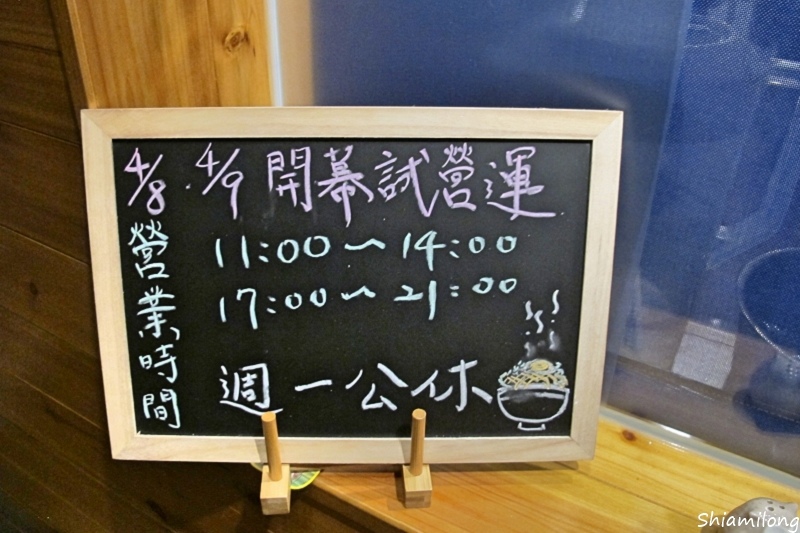 4/8.4/9開幕試營運
營業時間
11:00~14:00
17:00~21:00
週一公休
Shiamilong